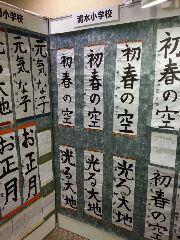 小学校
清水小学校
元気な子
元気な子
お正月
お正月
大地
初春の空
初春の空
初春の空
光る大地
光る大地
光る大地
初春の空